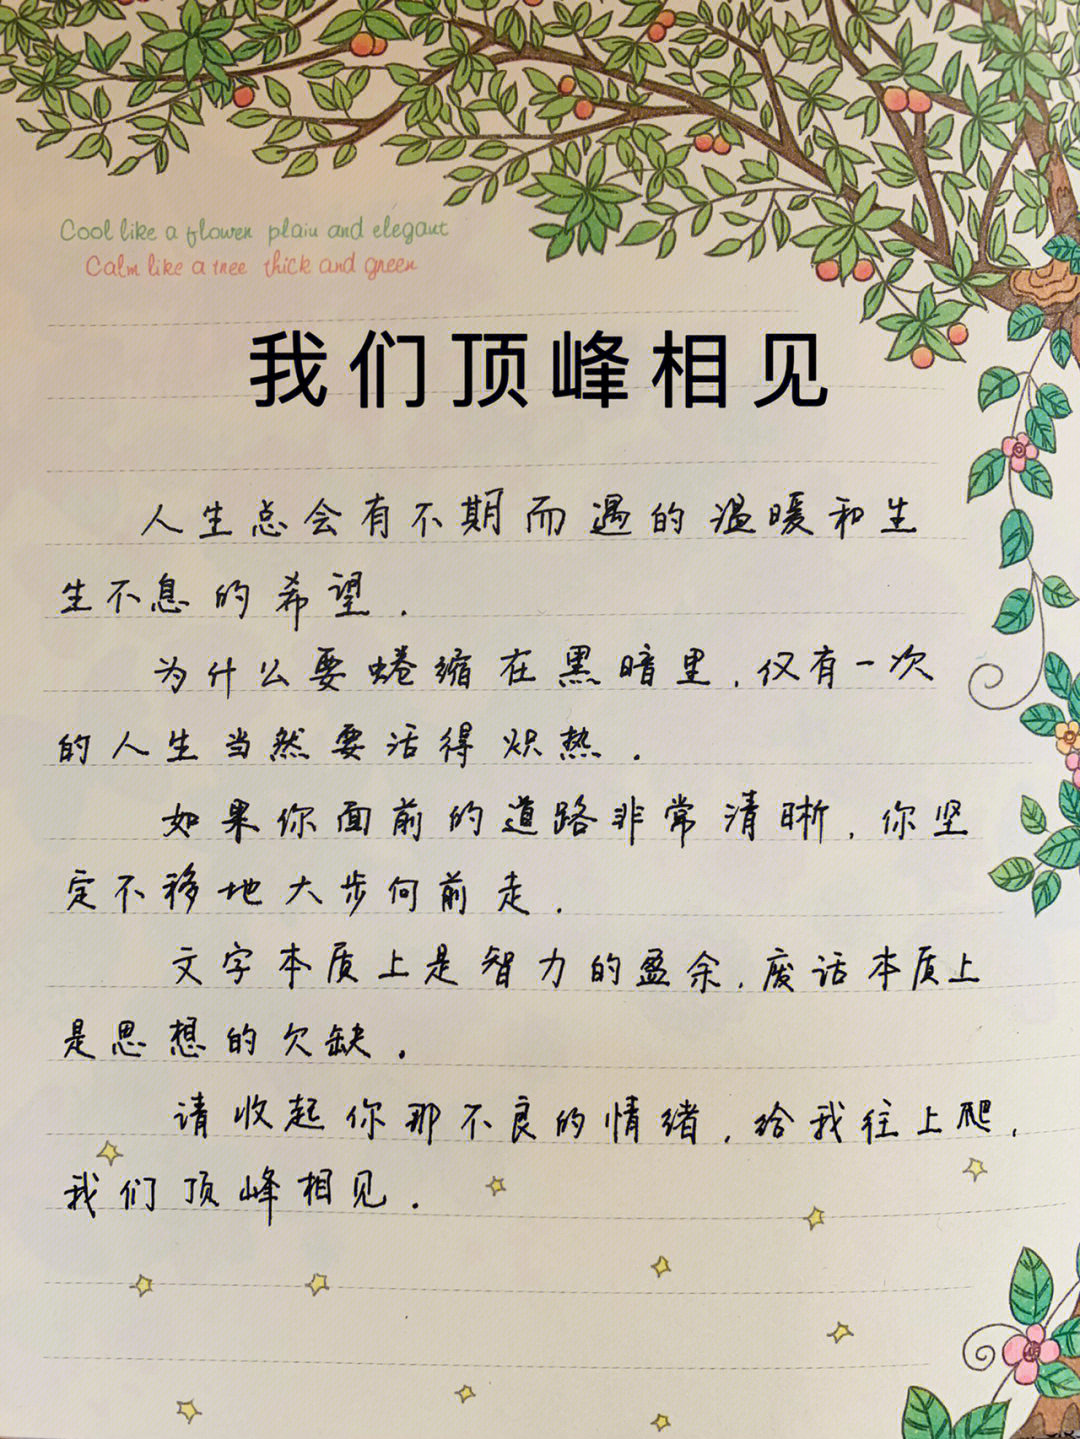 Cool like a flower plain and elegant
Calm like a tree thick and green
我们顶峰相见
人生总会有不期而遇的温暖和生
生不息的希望.
为什么要蜷缩在黑暗里,仅有一次
的人生当然要活得炽热.
如果你面前的道路非常清晰,你坚
定不移地大步向前走.
文字本质上是智力的盈余,废话本质上
是思想的欠缺.
请收起你那不良的情绪,给我往上爬,
我们顶峰相见.